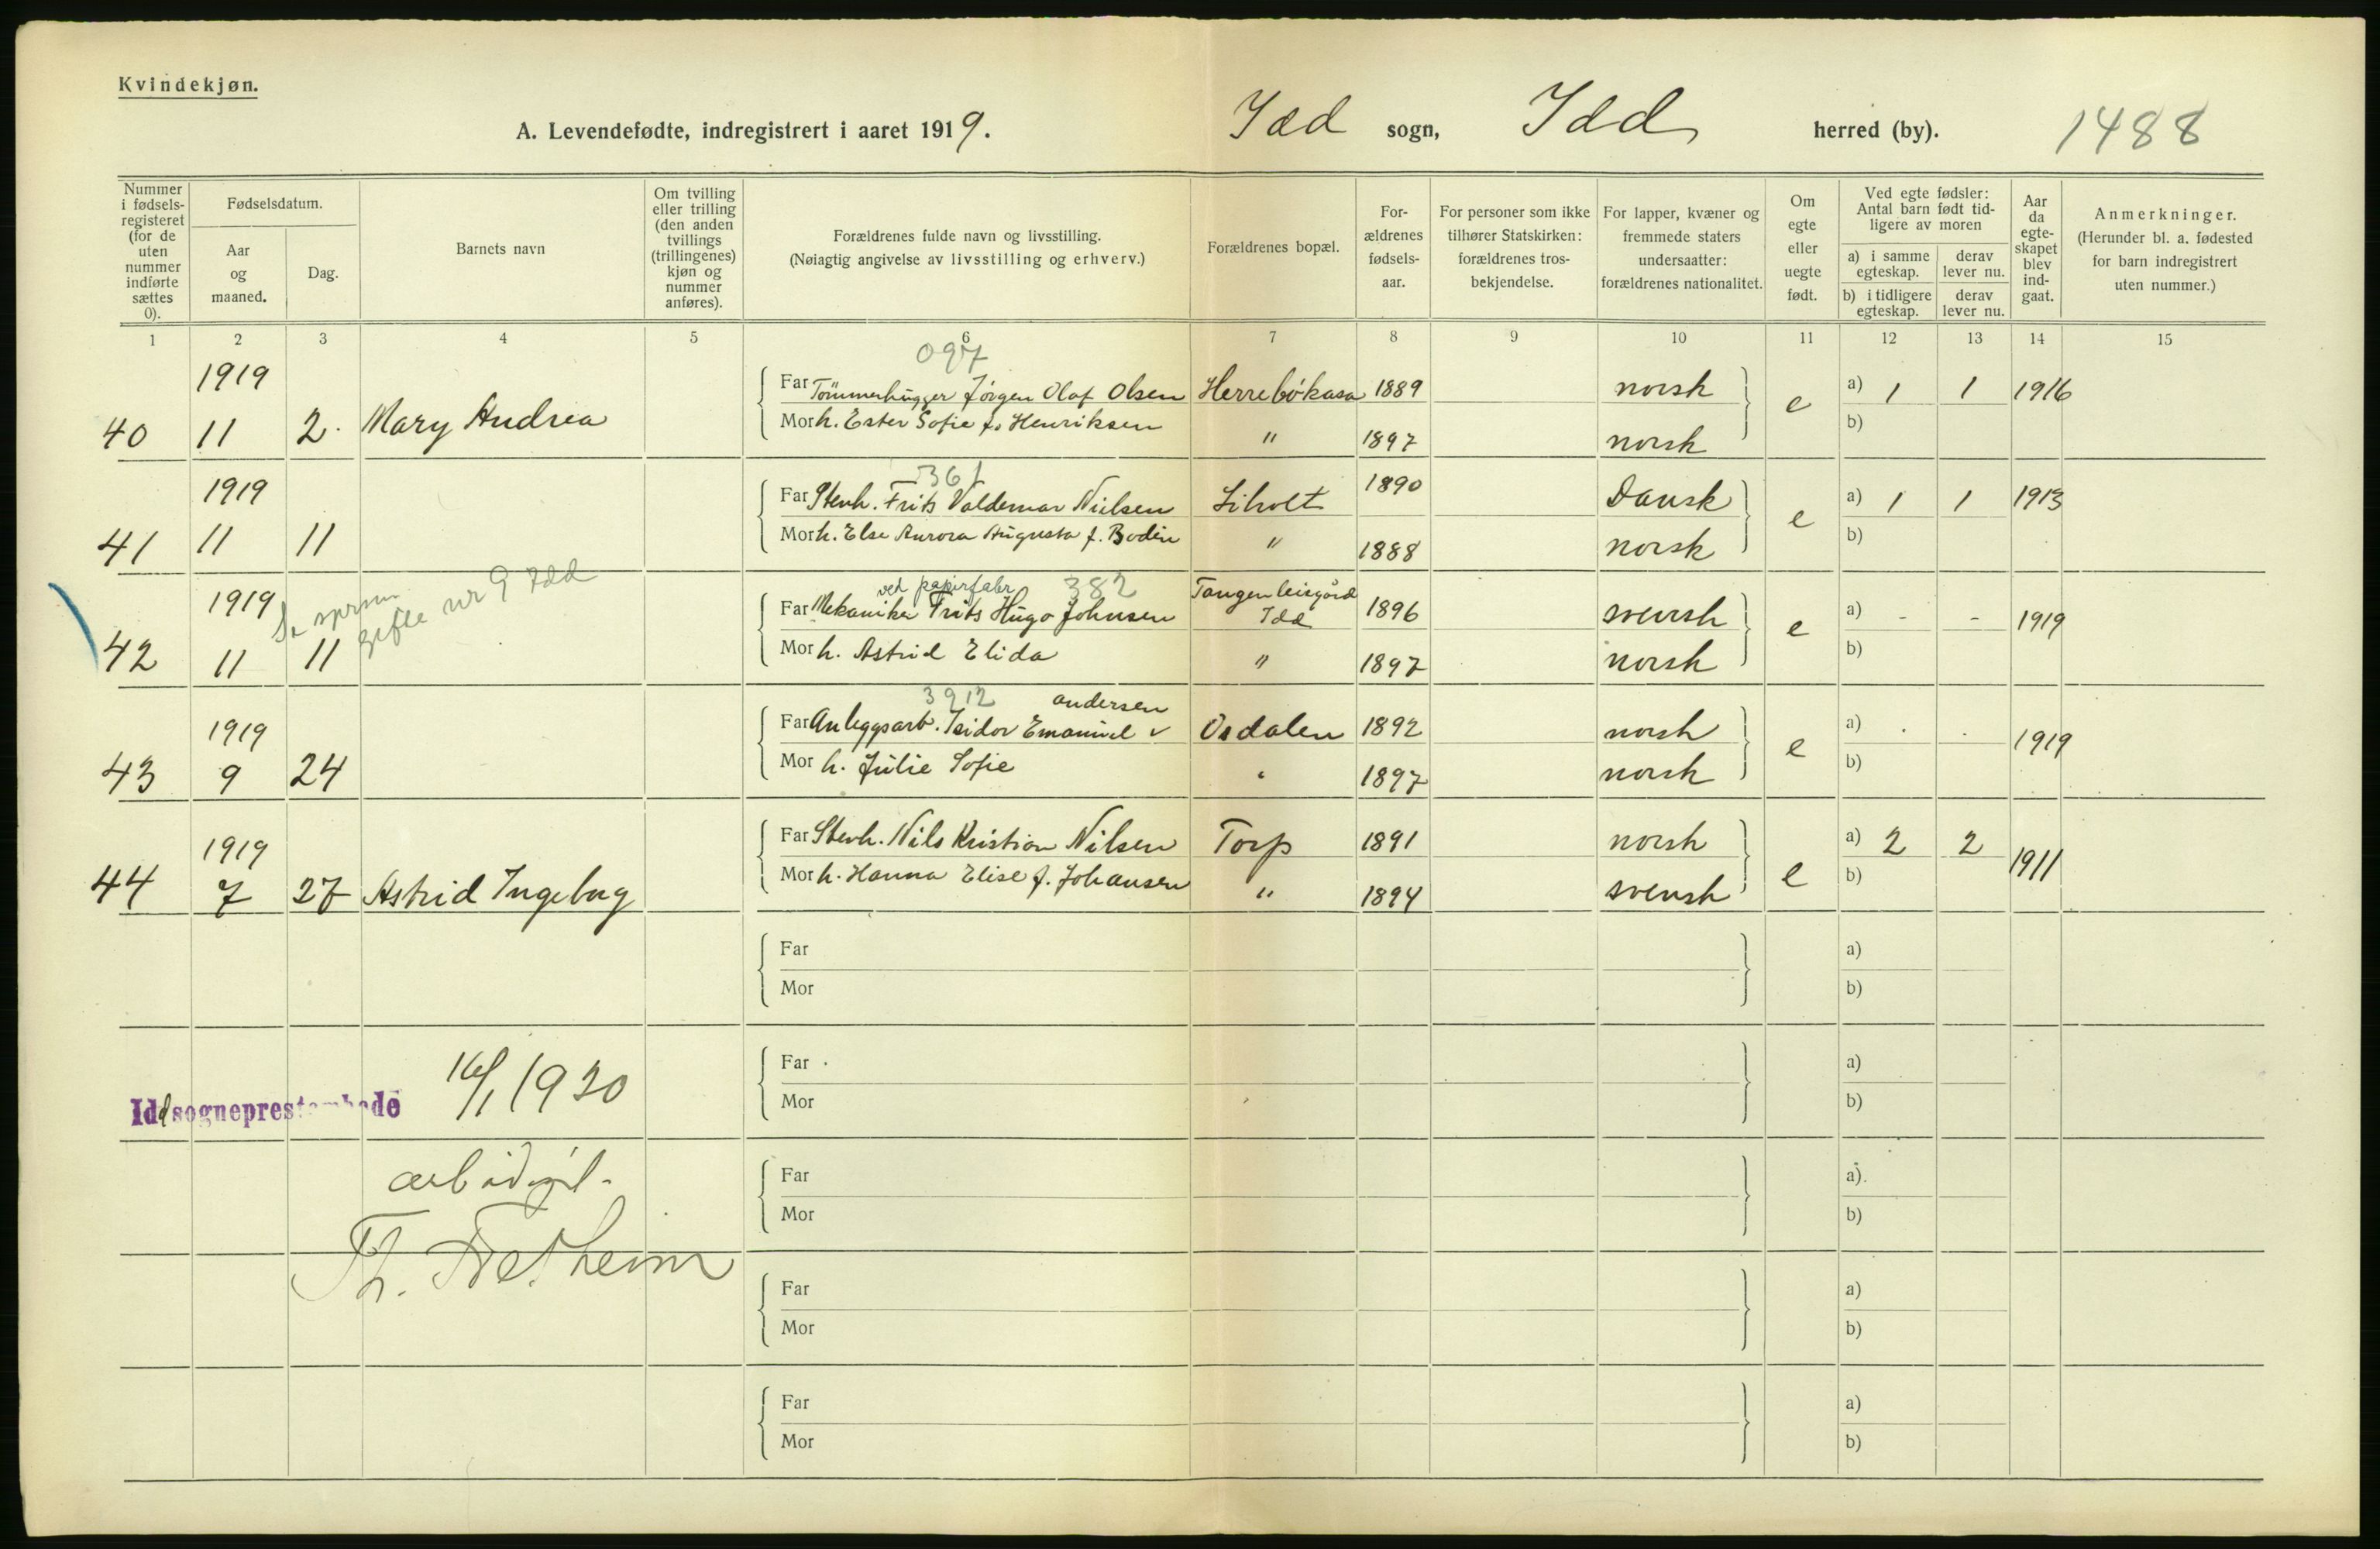 Kvindekjøn.
A. Levendefødte, indregistrert i aaret 1919. Idd sogn, Idd herred (by). 1488
Nummer i fødsels-registeret (for de uten nummer indførte sættes 0).
Fødselsdatum.
Aar og maaned.
Dag.
Barnets navn
Om tvilling eller trilling (den anden tvillings (trillingenes) kjøn og nummer anføres).
Forældrenes fulde navn og livsstilling.
(Nøiagtig angivelse av livsstilling og erhverv.)
Forældrenes bopæl.
For-ældrenes fødsels-aar.
For personer som ikke tilhører Statskirken: forældrenes tros-bekjendelse.
For lapper, kvæner og fremmede staters undersaatter: forældrenes nationalitet.
Om egte eller uegte født.
Ved egte fødsler: Antal barn født tid-ligere av moren
a) i samme egteskap.
derav lever nu.
b) i tidligere egteskap.
derav lever nu.
Aar da egte-skapet blev ind-gaat.
Anmerkninger.
(Herunder bl. a. fødested for barn indregistrert uten nummer.)
1 2 3 4 5 6 7 8 9 10 11 12 13 14 15
097
1919
Far Tömmerhugger Jörgen Olaf Olsen Herrebökasa 1889 norsk e a) 1 1 1916
40 11 2. Mary Andrea
Mor h. Ester Sofie f. Henriksen " 1897 norsk b)
361
1919
Far Stenh. Frits Valdemar Nielsen Liholt 1890 Dansk e a) 1 1 1913
41 11 11
Mor h. Else Aurora Augusta f. Bodin " 1888 norsk b)
ved papirfabr. 382
1919 gifte nr 9 Idd
Far Mekaniker Frits Hugo Johnsen Tangen Idd 1896 svensk e a) - - 1919
42 11 11
Mor h. Astrid Elida " 1897 norsk b)
3912 andersen
1919
Far Anleggsarb. Isidor Emanuel v Osdalen 1892 norsk e a) . . 1919
43 9 24
Mor h. Julie Sofie " 1897 norsk b)
1919
Far Stenh. Nils Kristian Nilsen Torp 1891 norsk e a) 2 2 1911
44 7 27 Astrid Ingeborg
Mor h. Hanna Elise f. Johansen " 1894 svensk b)
Far a)
Mor b)
Far a)
Idd sogneprestembede 16/1 1920
Mor b)
Far a)
Mor b)
Th. Fretheim
Far a)
Mor b)
Far a)
Mor b)